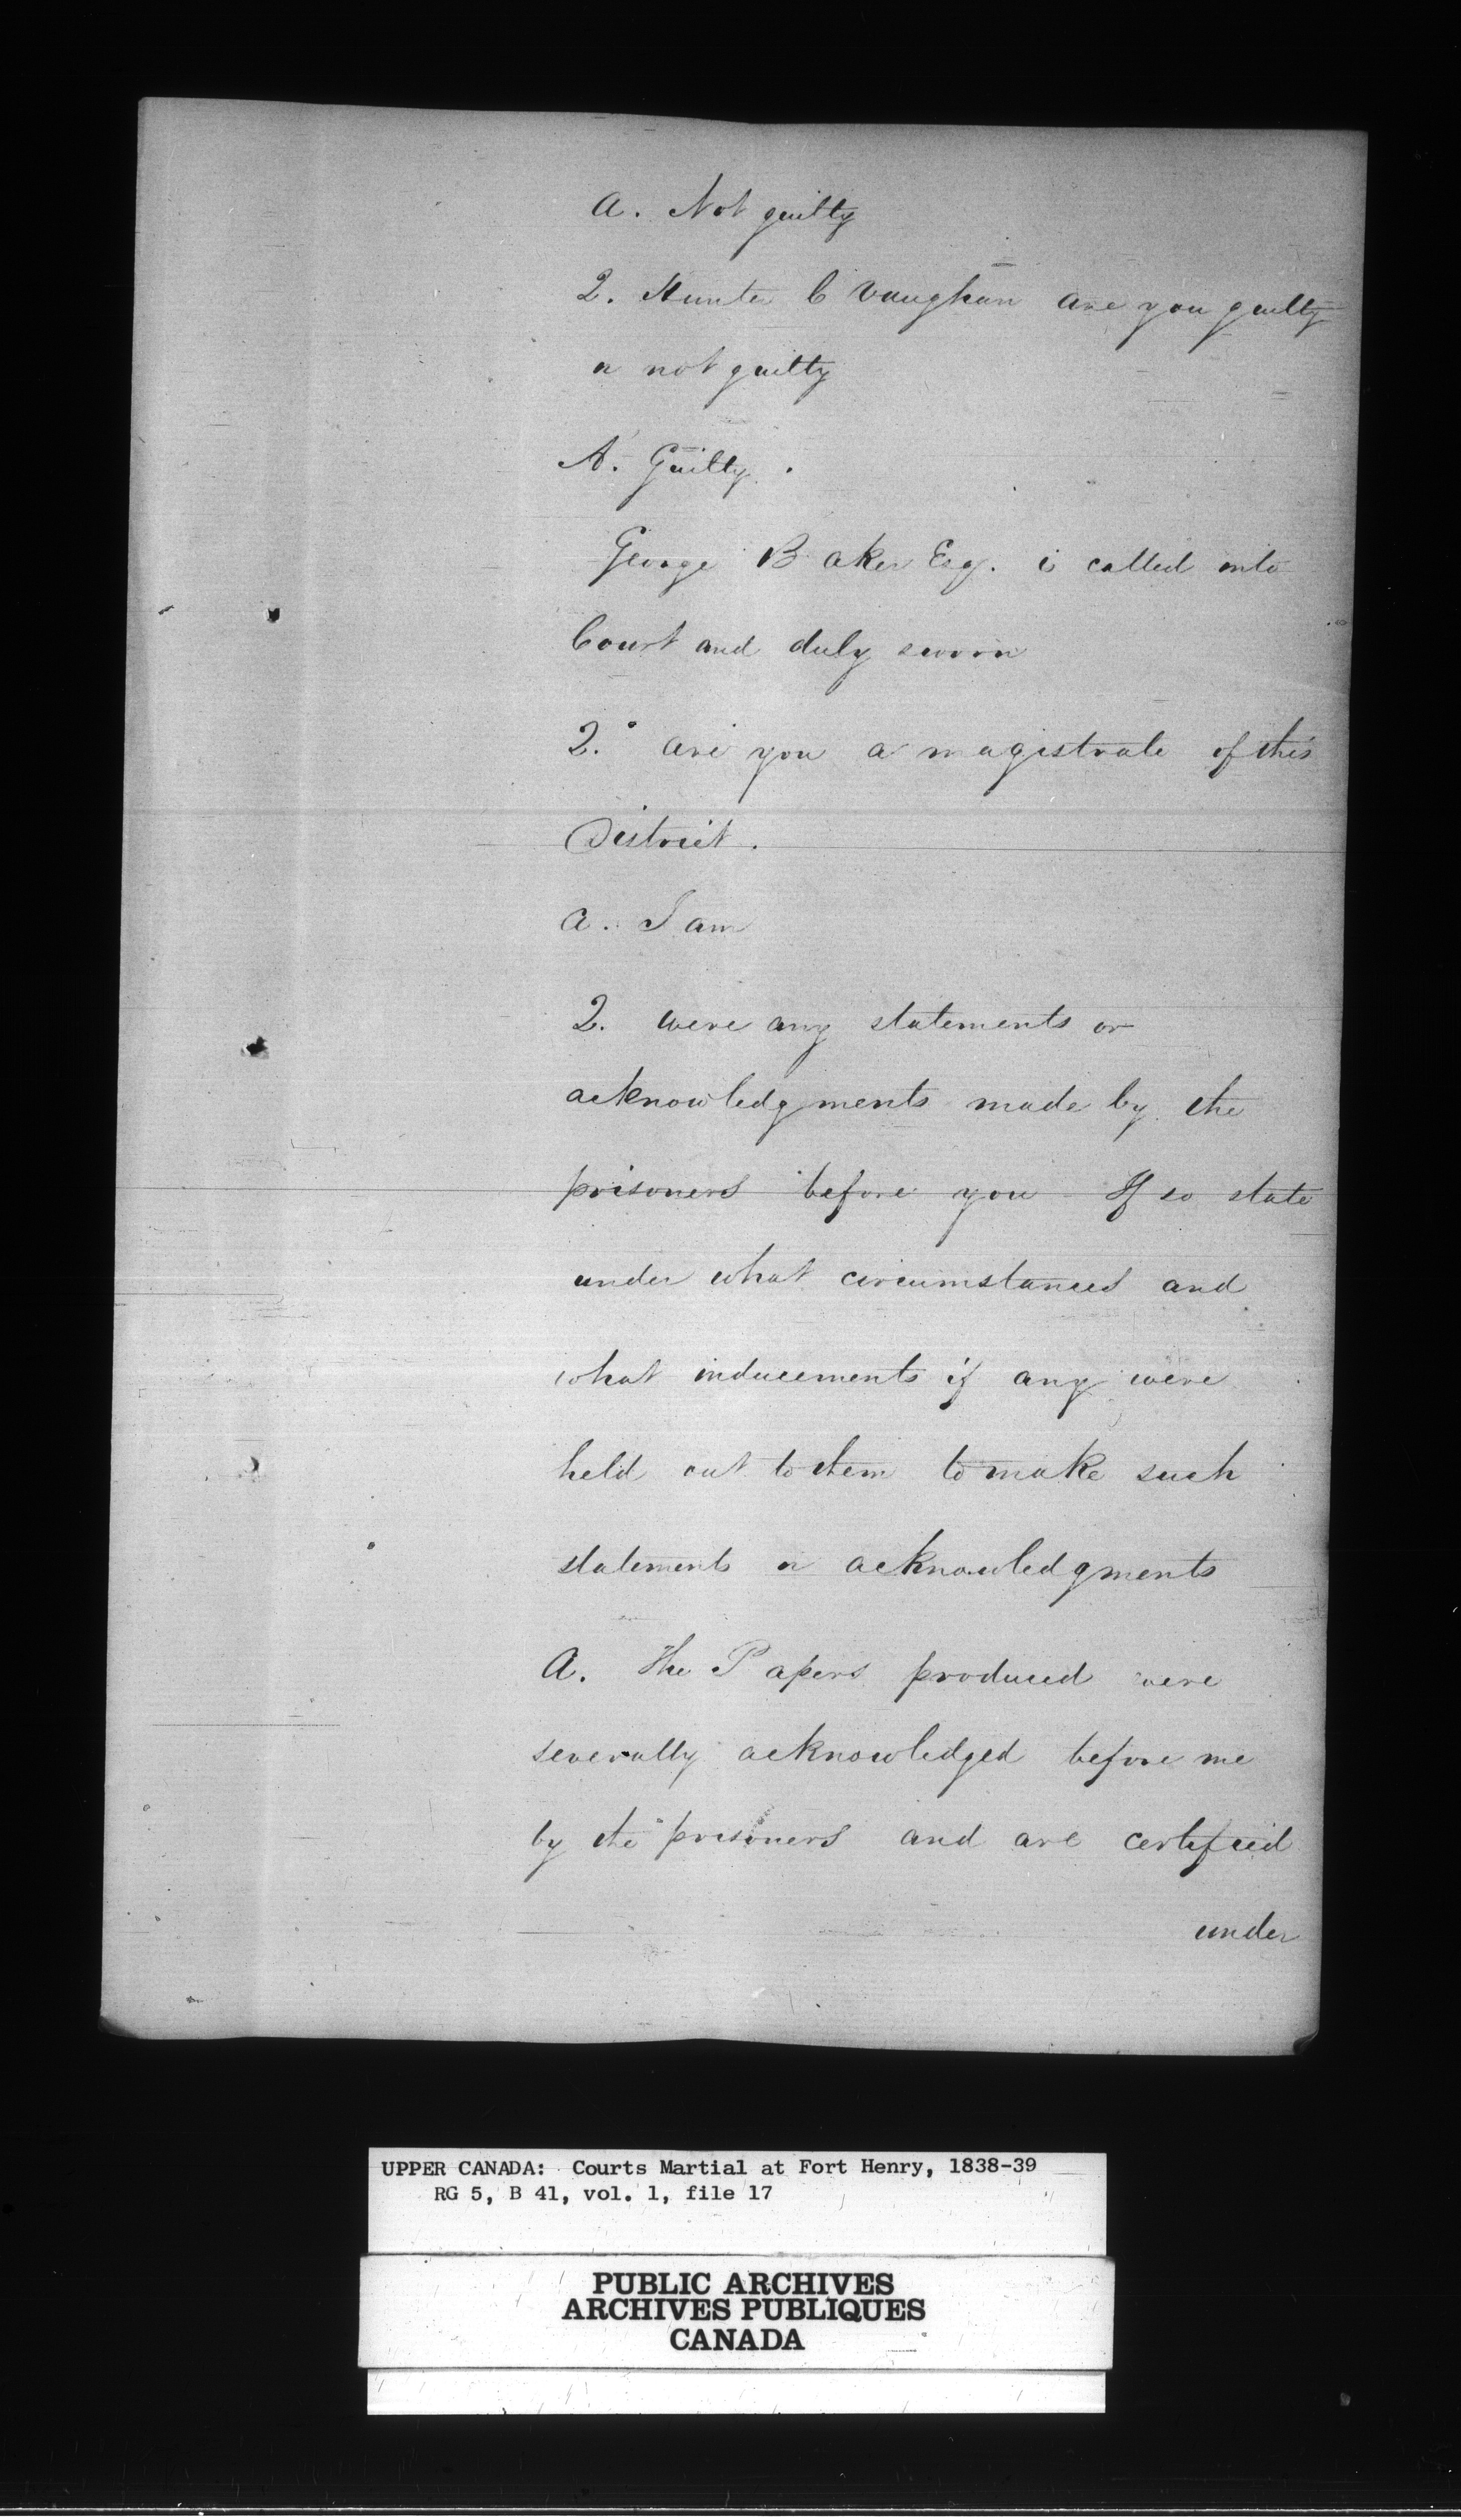 A. Not guilty
Q. Hunter C Vaughan are you guilty
or not guilty
A. Guilty.
George Baker Esq. is called into
Court and duly sworn
Q. are you a magistrate of this
District.
A. I am
Q. were any statements or
acknowledgments made by the
prisoners before you If so state
under what circumstances and
what inducements if any were
held out to them to make such
statements or acknowledgments
A. The Papers produced were
severally acknowledged before me
by the prisoners and are certified
under
UPPER CANADA: Courts Martial at Fort Henry, 1838-39
RG 5, B 41, vol. 1, file 17
PUBLIC ARCHIVES
ARCHIVES PUBLIQUES
CANADA